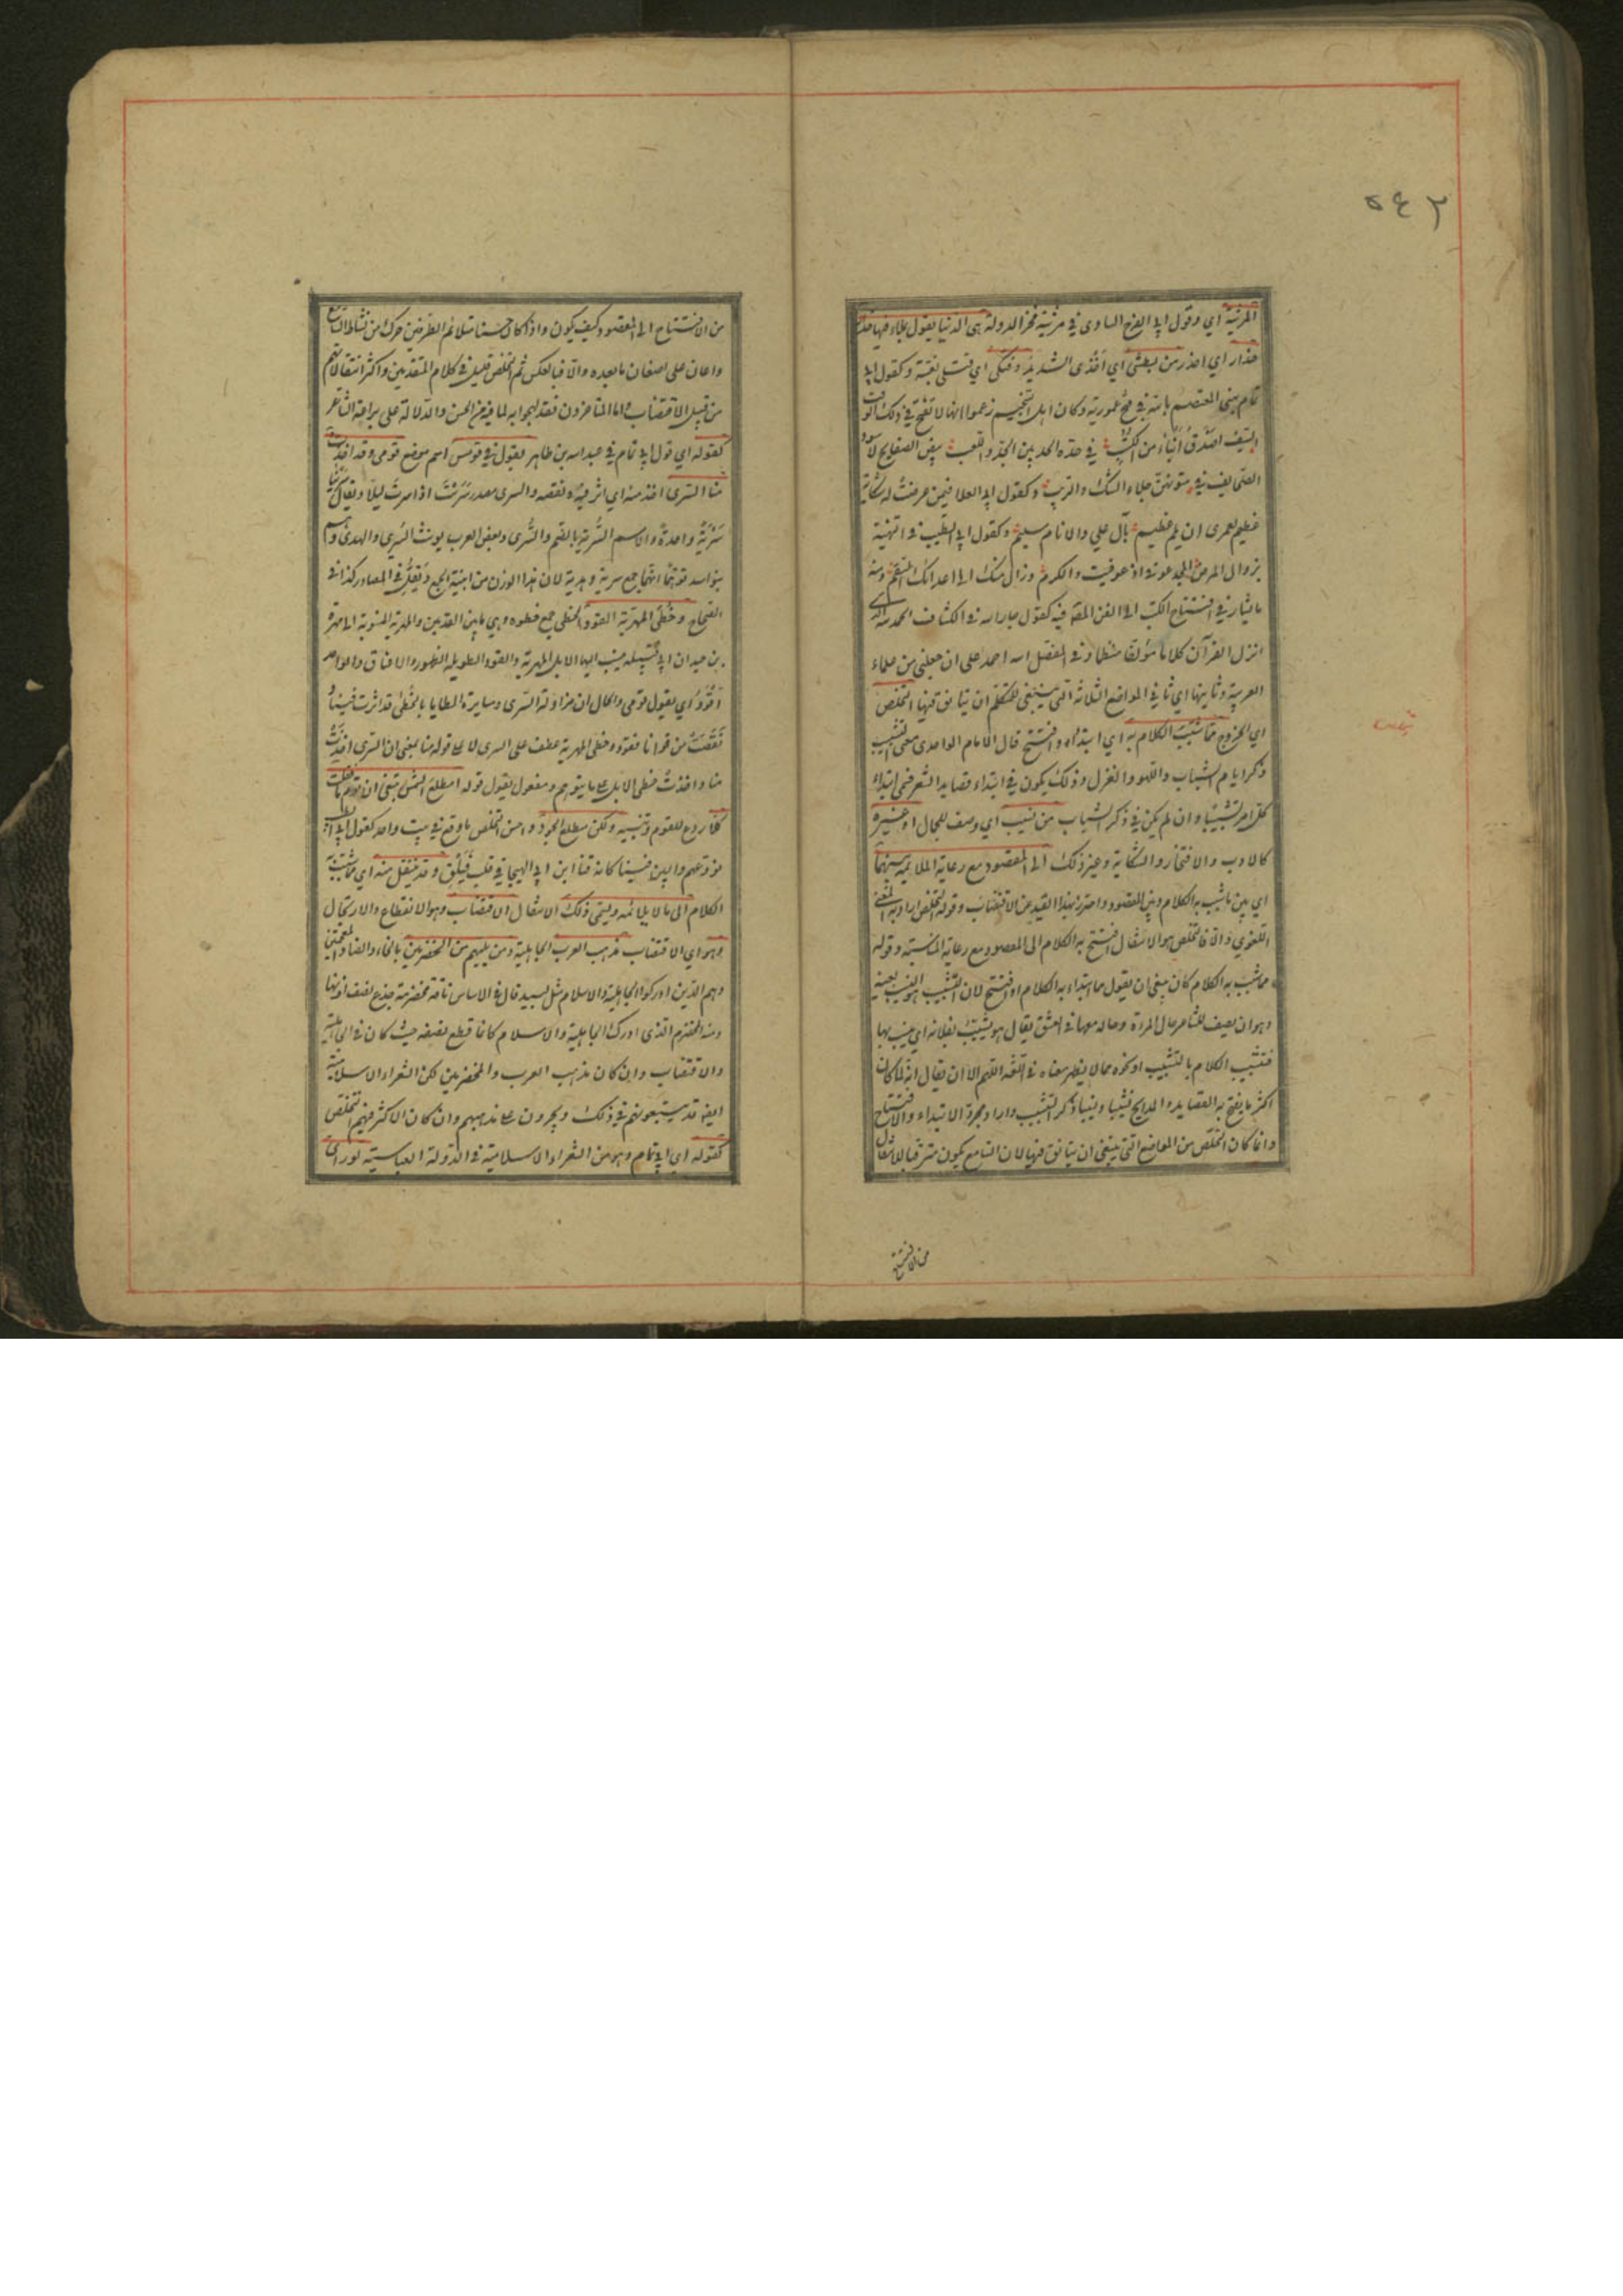 ٥٤٢
المرثية اي وقول ابي الفرج الساوي في مرثية فخر الدولة هي الدنيا تقول بملاء فيها حذار
حذار اي احذر من بطشي اي اخذي الشديد وفتكي اي قتلي بغتة وكقول ابي
تمام يهنى المعتصم بالله في فتح عمورية وكان اهل التنجيم زعموا انها لا تفتح في ذلك الوقت
السيف اصدق انباء من الكتب في حده الحد بين الجد واللعب بيض الصفايح لا سود
الصحايف في متونهن جلاء الشك والريب وكقول ابي العلا فيمن عرضت له شكاية
عظيم لعمري ان يلم عظيم بآل علي والانام سليم وكقول ابي الطيب في التهنية
بزوال المرض المجد عوفي اذ عوفيت والكرم وزال عنك الى اعدائك السقم ومنه
ما يشار في افتتاح الكتب الى الفن المصنف فيه كقول جار الله في الكشاف الحمد لله الذي
انزل القرآن كلاما مؤلفا منظما وفي المفصل الله احمد على ان جعلني من علماء
العربية وثانيها اي ثاني المواضع الثلاثة التي ينبغي للمتكلم ان يتانق فيها التخلص
اي الخروج مما شبب الكلام به اي ابتداء وافتتح قال الامام الواحدي معنى التشبيب
ذكر ايام الشباب واللهو والغزل وذلك يكون في ابتداء قصايد الشعر فسمي ابتداء
كل امر تشبيبا وان لم يكن في ذكر الشباب من نسيب اي وصف للجمال او غيره
كالادب والافتخار والشكاية وغير ذلك الى المقصود مع رعاية الملايمة بينهما
اي بين ما شبب به الكلام وبين المقصود واحترز بهذا القيد عن الاقتضاب وقوله التخلص اراد به المعنى
اللغوي والا فالتخلص هو الانتقال مما افتتح به الكلام الى المقصود مع رعاية المناسبة وقوله
مما شبب به الكلام كان ينبغي ان يقول مما ابتداء به الكلام او افتتح لان التشبيب هو النسيب بعينه
وهو ان يصف الشاعر حال المراة وحاله معها في العشق يقال هو يشبب بفلانة اي ينسب بها
فتشبيب الكلام بالتشبيب او نحوه مما لا يظهر معناه في اللغة اللهم الا ان يقال انه لما كان
اكثر ما يفتتح به القصايد والمدايح تشبيبا ونسيبا ذكر التشبيب واراد مجرد الابتداء والافتتاح
وانما كان التخلص من المواضع التي ينبغي ان يتانق فيها لان السامع يكون مترقبا للانتقال
من الافتتاح
من الافتتاح الى المقصود كيف يكون واذا كان حسنا متلائم الطرفين حرك من نشاط السامع
واعان على اصغائه ما بعده والا فبالعكس ثم التخلص قليل في كلام المتقدمين واكثر انتقالاتهم
من قبيل الاقتضاب واما المتاخرون فقد لهجوا به لما فيه من الحسن والدلالة على براعة الشاعر
كقوله اي قول ابي تمام في عبد الله بن طاهر يقول في قومس اسم موضع قومي وقد اخذت
منا السرى اخذ منه اي اثر فيه ونقصه والسرى مصدر سريت اذا سرت ليلا ويقال سرينا
سرية واحدة والاسم السرية بالضم والسرى وبعض العرب يونث السرى والهدى وهم
بنو اسد توهما انهما جمع سرية وهدية لان هذا الوزن من ابنية الجمع ويقل في المصادر كذا في
الصحاح وخطى المهرية القود الخطى جمع خطوه وهي ما بين القدمين والمهرية المنسوبة الى مهرة
بن حيدان ابي قبيلة ينسب اليها الابل المهرية والقود الطويلة الظهور والاعناق والواحد
اقود اي يقول قومي والحال ان مزاولة السرى ومسايرة المطايا بالخطى قد اثرت فينا و
نقصت من قوانا فقوله وخطى المهرية عطف على السرى لا على قوله منا بمعنى ان السرى اخذت
منا واخذت خطى الابل على ما يتوهم ومفعول يقول قوله امطلع الشمس تبغي ان تؤم بنا فقلت
كلا ردع للقوم وتنبيه ولكن مطلع الجود واحسن التخلص ما وقع في بيت واحد كقول ابي الطيب
نودعهم والبين فينا كانه قنا ابن ابي الهيجا في قلب فيلق وقد ينتقل منه اي مما شبب به
الكلام الى ما لا يلائمه ويسمى ذلك الانتقال الاقتضاب وهو الانقطاع والارتجال
وهو اي الاقتضاب مذهب العرب الجاهلية ومن يليهم من المخضرمين بالخاء والضاد المعجمتين
وهم الذين ادركوا الجاهلية والاسلام مثل لبيد قال في الاساس ناقة مخضرمة جذع نصف اذنها
ومنه المخضرم الذي ادرك الجاهلية والاسلام كانما قطع نصفه حيث كان في الجاهلية
والاقتضاب وان كان مذهب العرب والمخضرمين لكن الشعراء الاسلامية
ايضا قد يتبعونهم في ذلك ويجرون على مذهبهم وان كان الاكثر فيهم التخلص
كقوله اي ابي تمام وهو من الشعراء الاسلامية في الدولة العباسية لو راى